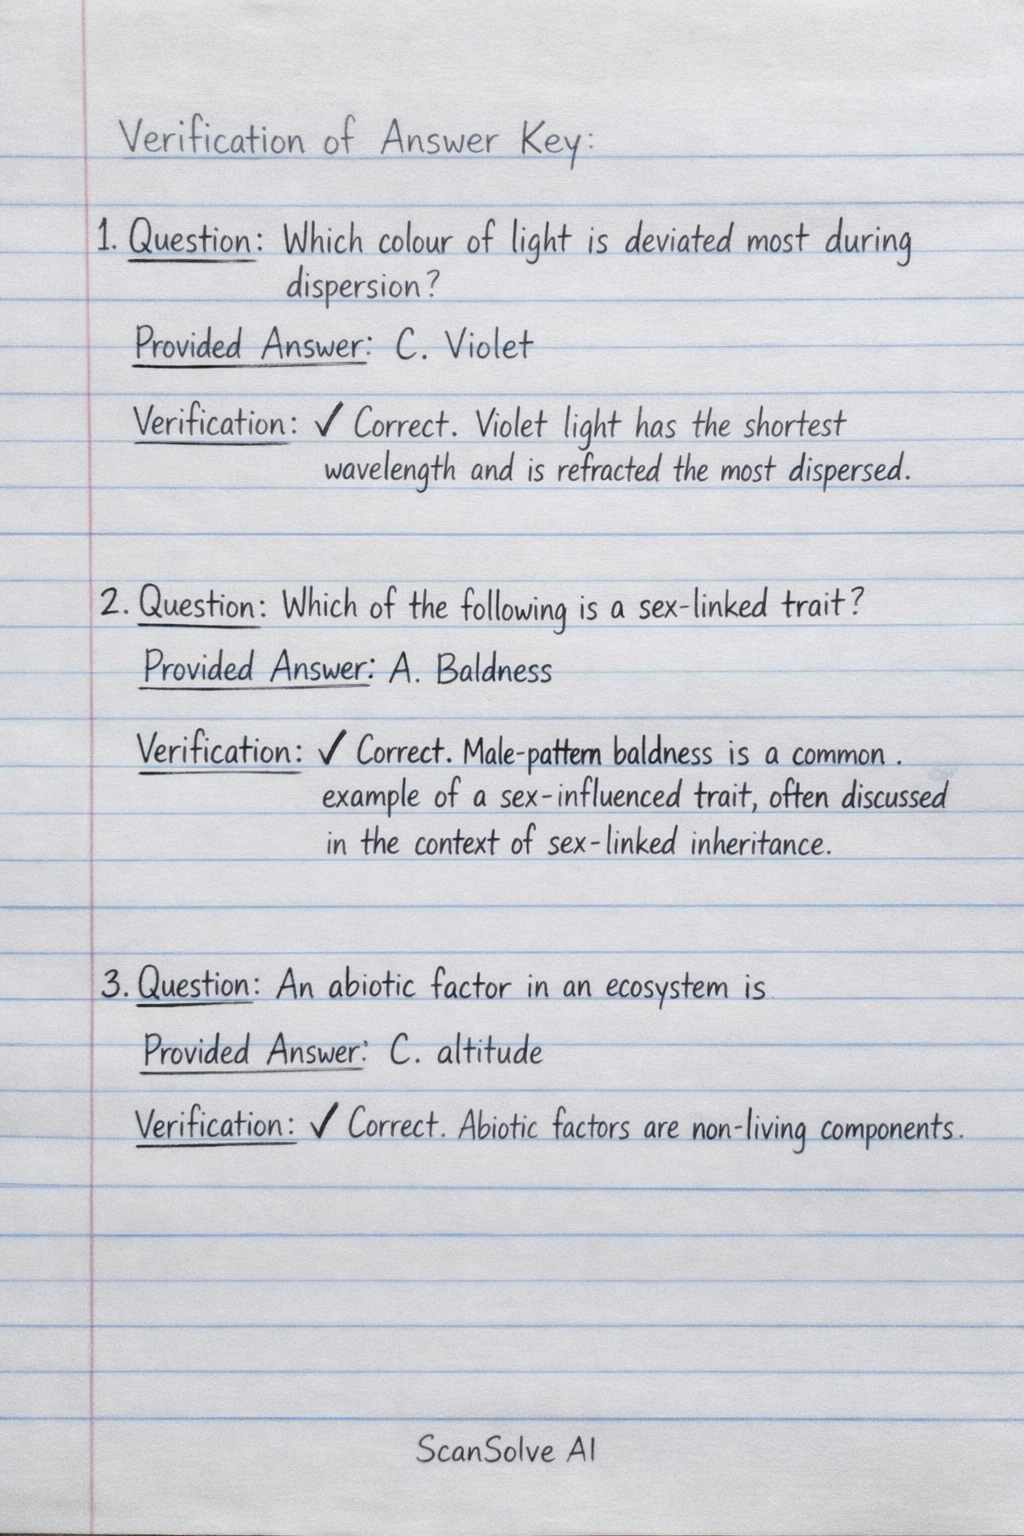 Verification of Answer Key:
1. Question: Which colour of light is deviated most during
dispersion?
Provided Answer: C. Violet
Verification: ✓ Correct. Violet light has the shortest
wavelength and is refracted the most dispersed.
2. Question: Which of the following is a sex-linked trait?
Provided Answer: A. Baldness
Verification: ✓ Correct. Male-pattern baldness is a common.
example of a sex-influenced trait, often discussed
in the context of sex-linked inheritance.
3. Question: An abiotic factor in an ecosystem is
Provided Answer: C. altitude
Verification: ✓ Correct. Abiotic factors are non-living components.
ScanSolve AI